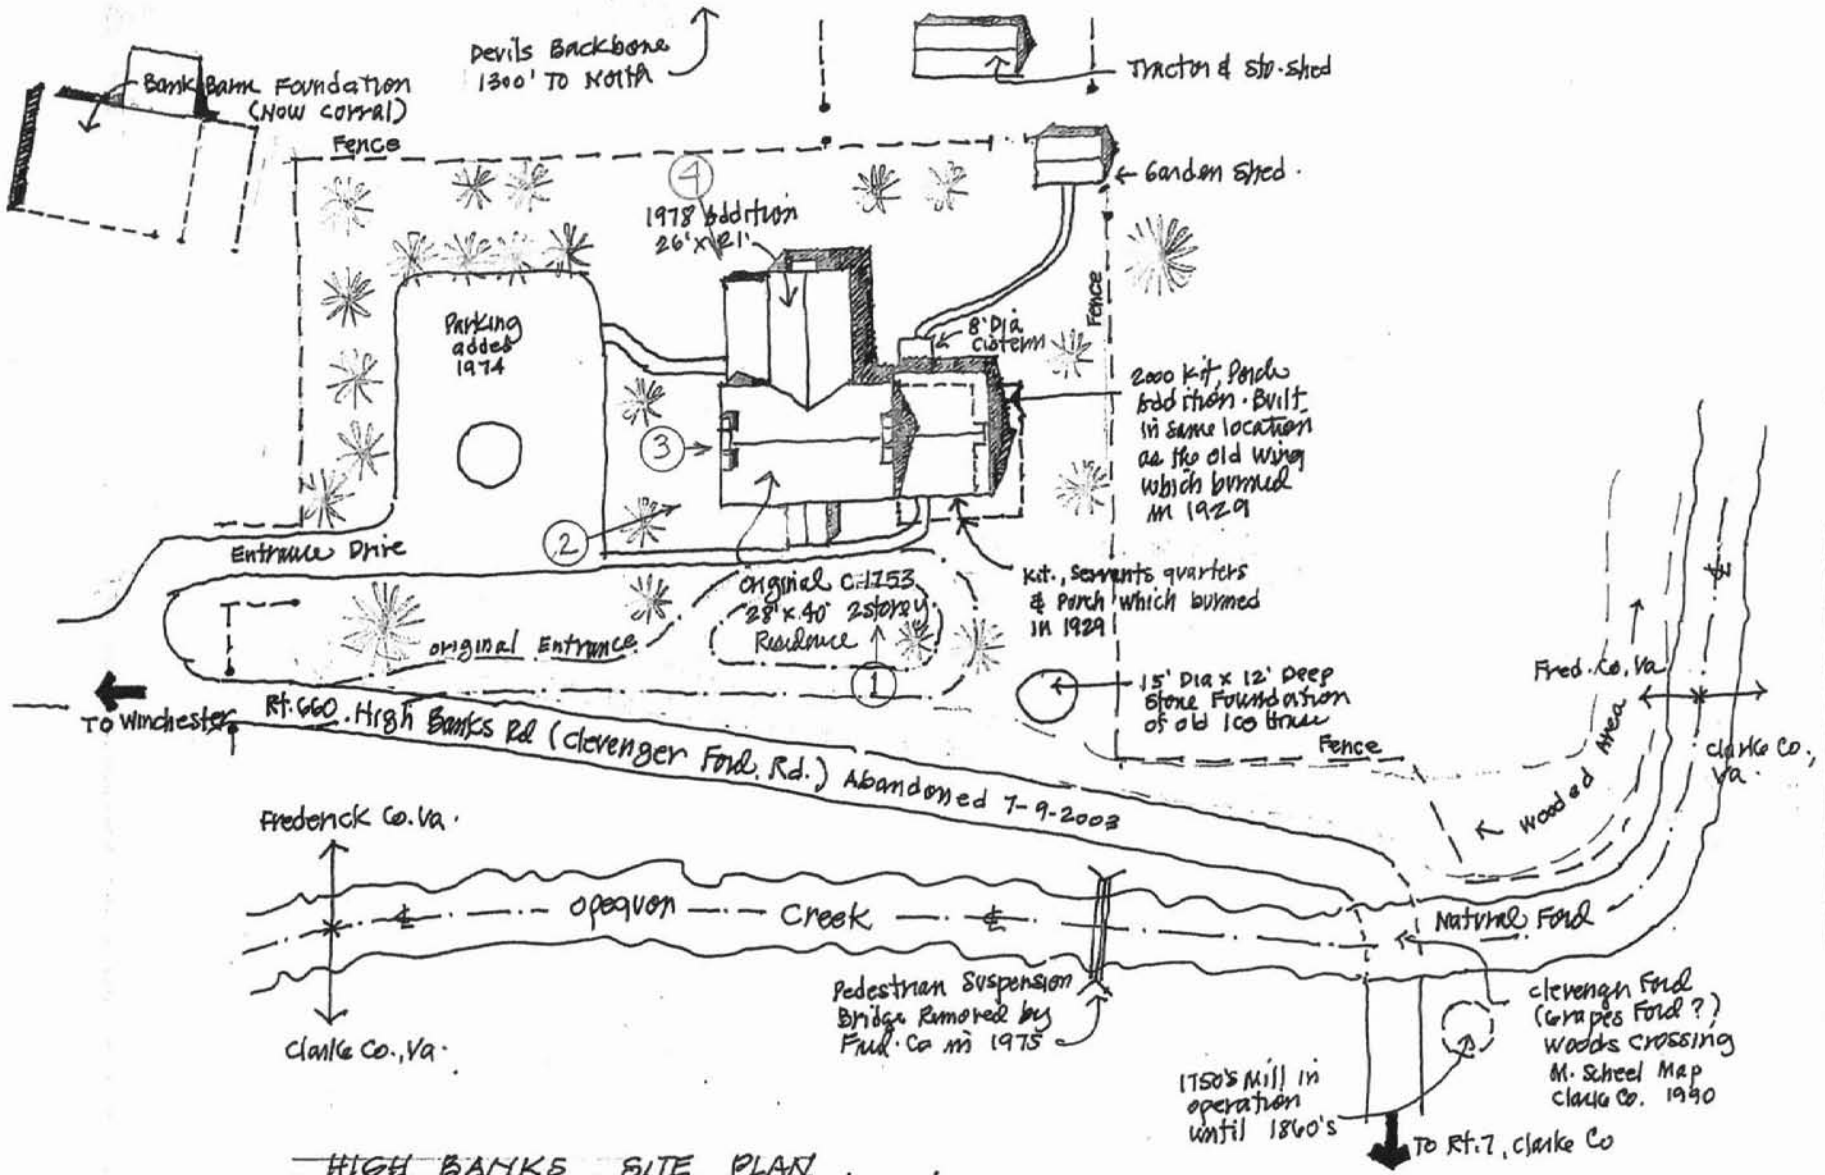 Devils Backbone
1300' To North
Tractor & Sto. Shed
Bank Barn Foundation
(Now corral)
Fence
Garden Shed.
4
1978 Addition
26' x 21'
Fence
Parking
added
1974
8' Dia
Cistern
2000 Kit, Porch
Addition. Built
in same location
as the old wing
which burned
in 1929
3
2
Entrance Drive
original C.1753
28' x 40' 2 storey
Residence
Kit., Servants quarters
& Porch which burned
in 1929
original Entrance
1
15' Dia x 12' Deep
Stone Foundation
of old Ice House
Fence
Fred. Co. Va
Clarke Co.,
Va.
Wooded Area
To Winchester
Rt. 660. High Banks Rd (Clevenger Ford. Rd.) Abandoned 7-9-2003
Frederick Co. Va.
Opequon Creek
Natural Ford
Clarke Co., Va.
Pedestrian Suspension
Bridge Removed by
Fred. Co in 1975
Clevenger Ford
(Grapes Ford ?)
Woods Crossing
M. Scheel Map
Clarke Co. 1990
1750's Mill in
operation
until 1860's
To Rt. 7, Clarke Co
HIGH BANKS SITE PLAN